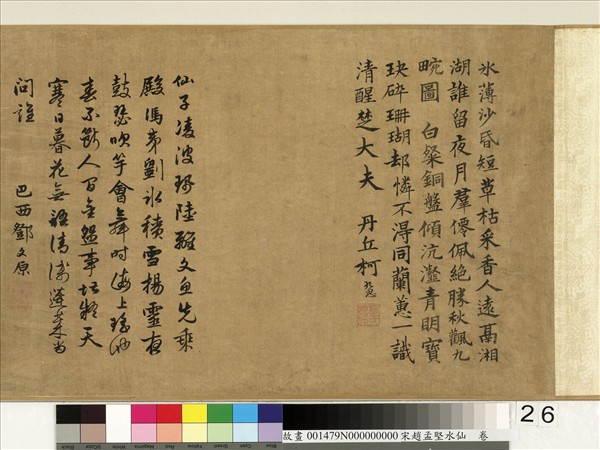 氷薄沙昏短草枯采香人遠鬲湘
湖誰留夜月羣僊佩絶勝秋觀九
畹圖 白粲銅盤傾沆瀣青明寶
玦碎珊瑚却憐不得同蘭蕙一識
清醒楚大夫 丹丘柯九思
仙子凌波珮陸離文魚先乘
殿馮夷斲氷積雪揚靈夜
鼓瑟吹竽會舞时海上瑤池
春不斷人間金盌事堪疑天
寒日暮花無語清淺蓬萊当
問誰 巴西鄧文原
26
故畫 001479N000000000 宋趙孟堅水仙 卷